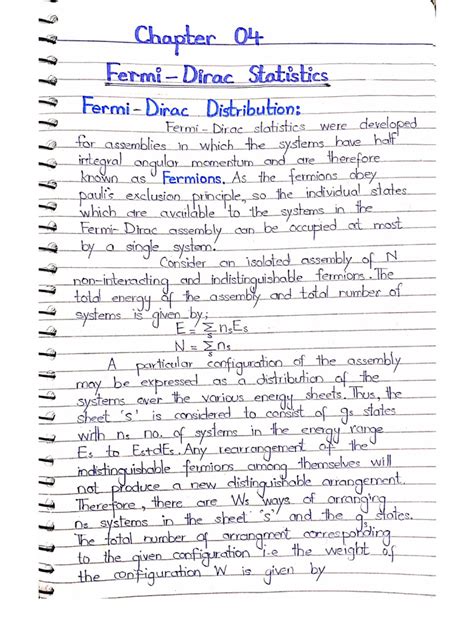 Chapter 04
Fermi-Dirac Statistics
Fermi-Dirac Distribution:
Fermi-Dirac statistics were developed
for assemblies in which the systems have half
integral angular momentum and are therefore
known as Fermions. As the fermions obey
pauli's exclusion principle, so the individual states
which are available to the systems in the
Fermi-Dirac assembly can be occupied at most
by a single system.
Consider an isolated assembly of N
non-interacting and indistinguishable fermions. The
total energy of the assembly and total number of
systems is given by;
E = Σ_s n_s E_s
N = Σ_s n_s
A particular configuration of the assembly
may be expressed as a distribution of the
systems over the various energy sheets. Thus, the
sheet 's' is considered to consist of g_s states
with n_s no. of systems in the energy range
E_s to E_s+dE_s. Any rearrangement of the
indistinguishable fermions among themselves will
not produce a new distinguishable arrangement.
Therefore, there are W_s ways of arranging
n_s systems in the sheet 's' and the g_s states.
The total number of arrangment corresponding
to the given configuration i.e the weight of
the configuration W is given by